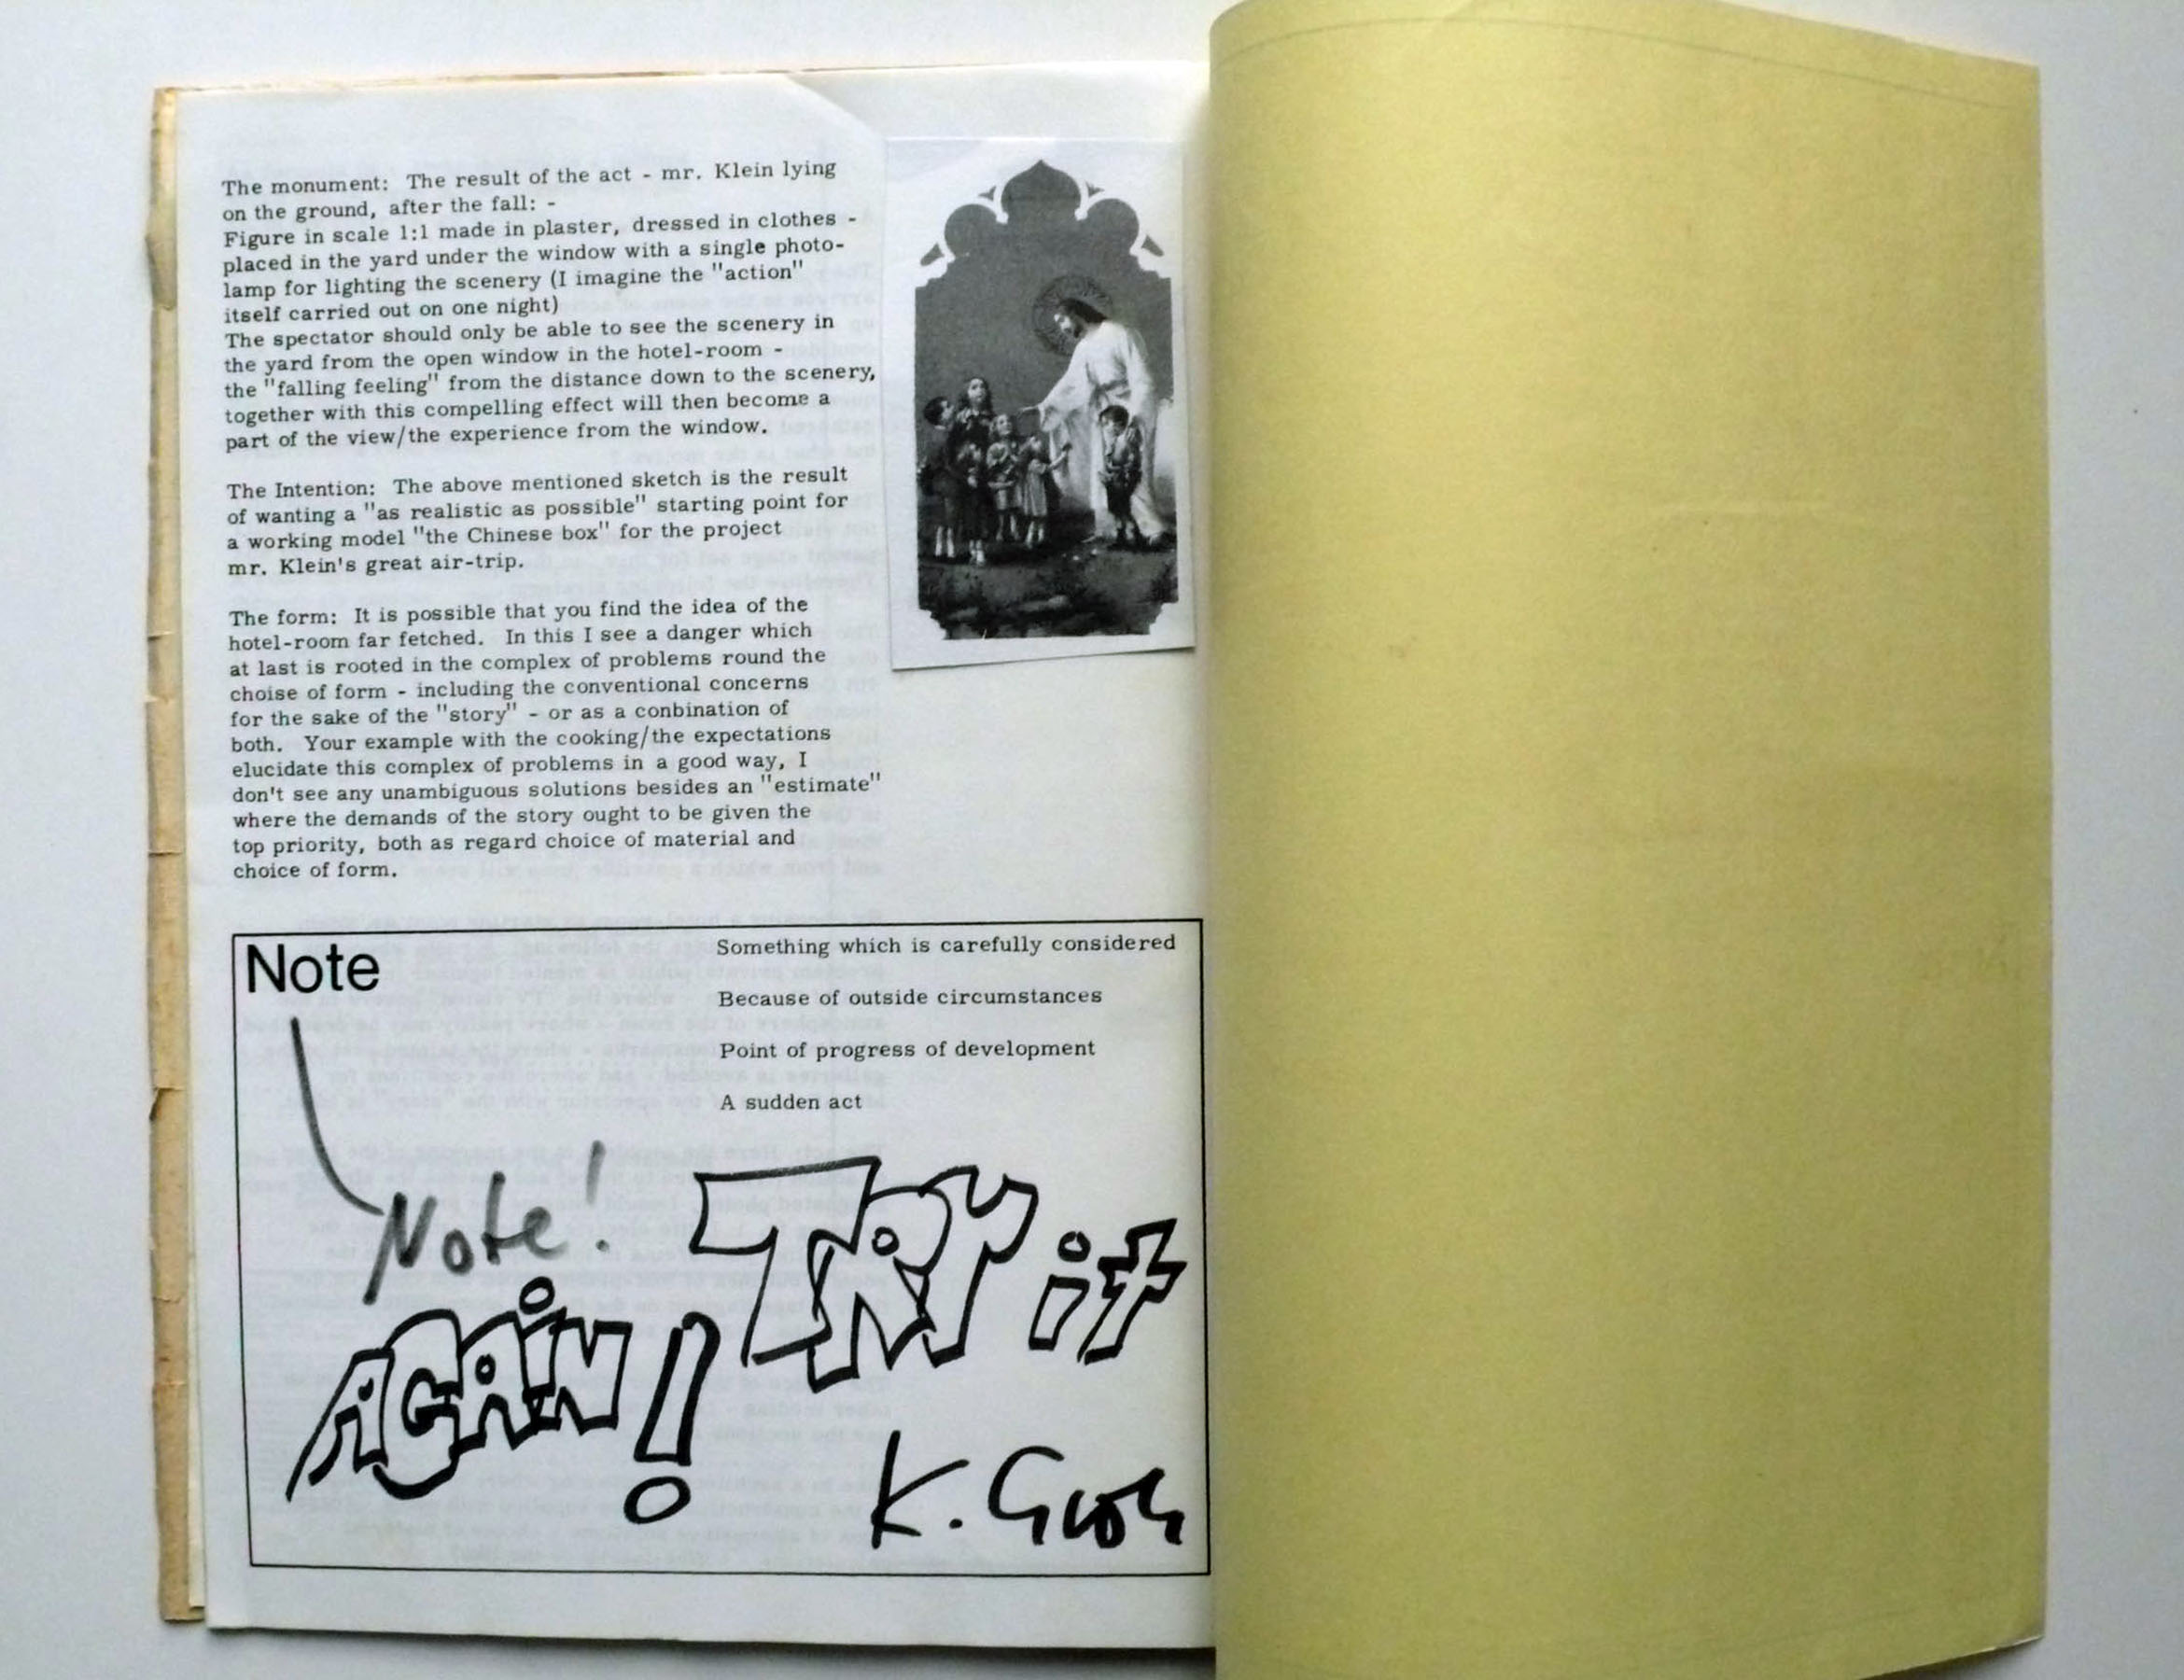 The monument:  The result of the act - mr. Klein lying
on the ground, after the fall: -
Figure in scale 1:1 made in plaster, dressed in clothes -
placed in the yard under the window with a single photo-
lamp for lighting the scenery (I imagine the "action"
itself carried out on one night)
The spectator should only be able to see the scenery in
the yard from the open window in the hotel-room -
the "falling feeling" from the distance down to the scenery,
together with this compelling effect will then become a
part of the view/the experience from the window.
The Intention:  The above mentioned sketch is the result
of wanting a "as realistic as possible" starting point for
a working model "the Chinese box" for the project
mr. Klein's great air-trip.
The form:  It is possible that you find the idea of the
hotel-room far fetched.  In this I see a danger which
at last is rooted in the complex of problems round the
choise of form - including the conventional concerns
for the sake of the "story" - or as a conbination of
both.  Your example with the cooking/the expectations
elucidate this complex of problems in a good way, I
don't see any unambiguous solutions besides an "estimate"
where the demands of the story ought to be given the
top priority, both as regard choice of material and
choice of form.
Note
Something which is carefully considered
Because of outside circumstances
Point of progress of development
A sudden act
Note!
TRY it
AGAiN!
K. Groh